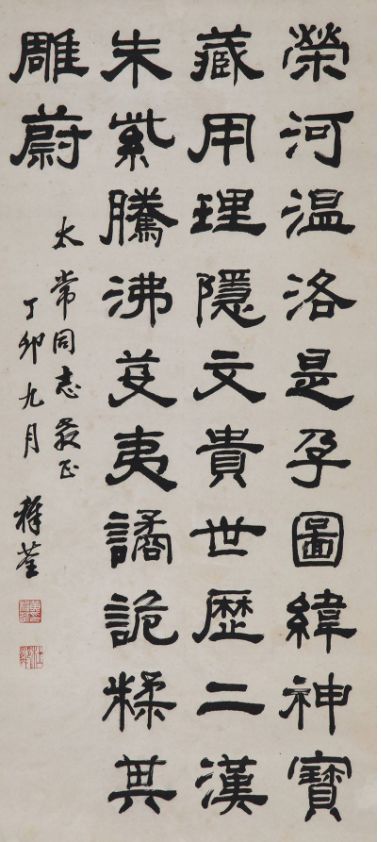 榮河温洛是孕圖緯神寶
藏用理隱文貴世歷二漢
朱紫騰沸芟夷譎詭糅其
雕蔚
太常同志正
丁卯九月